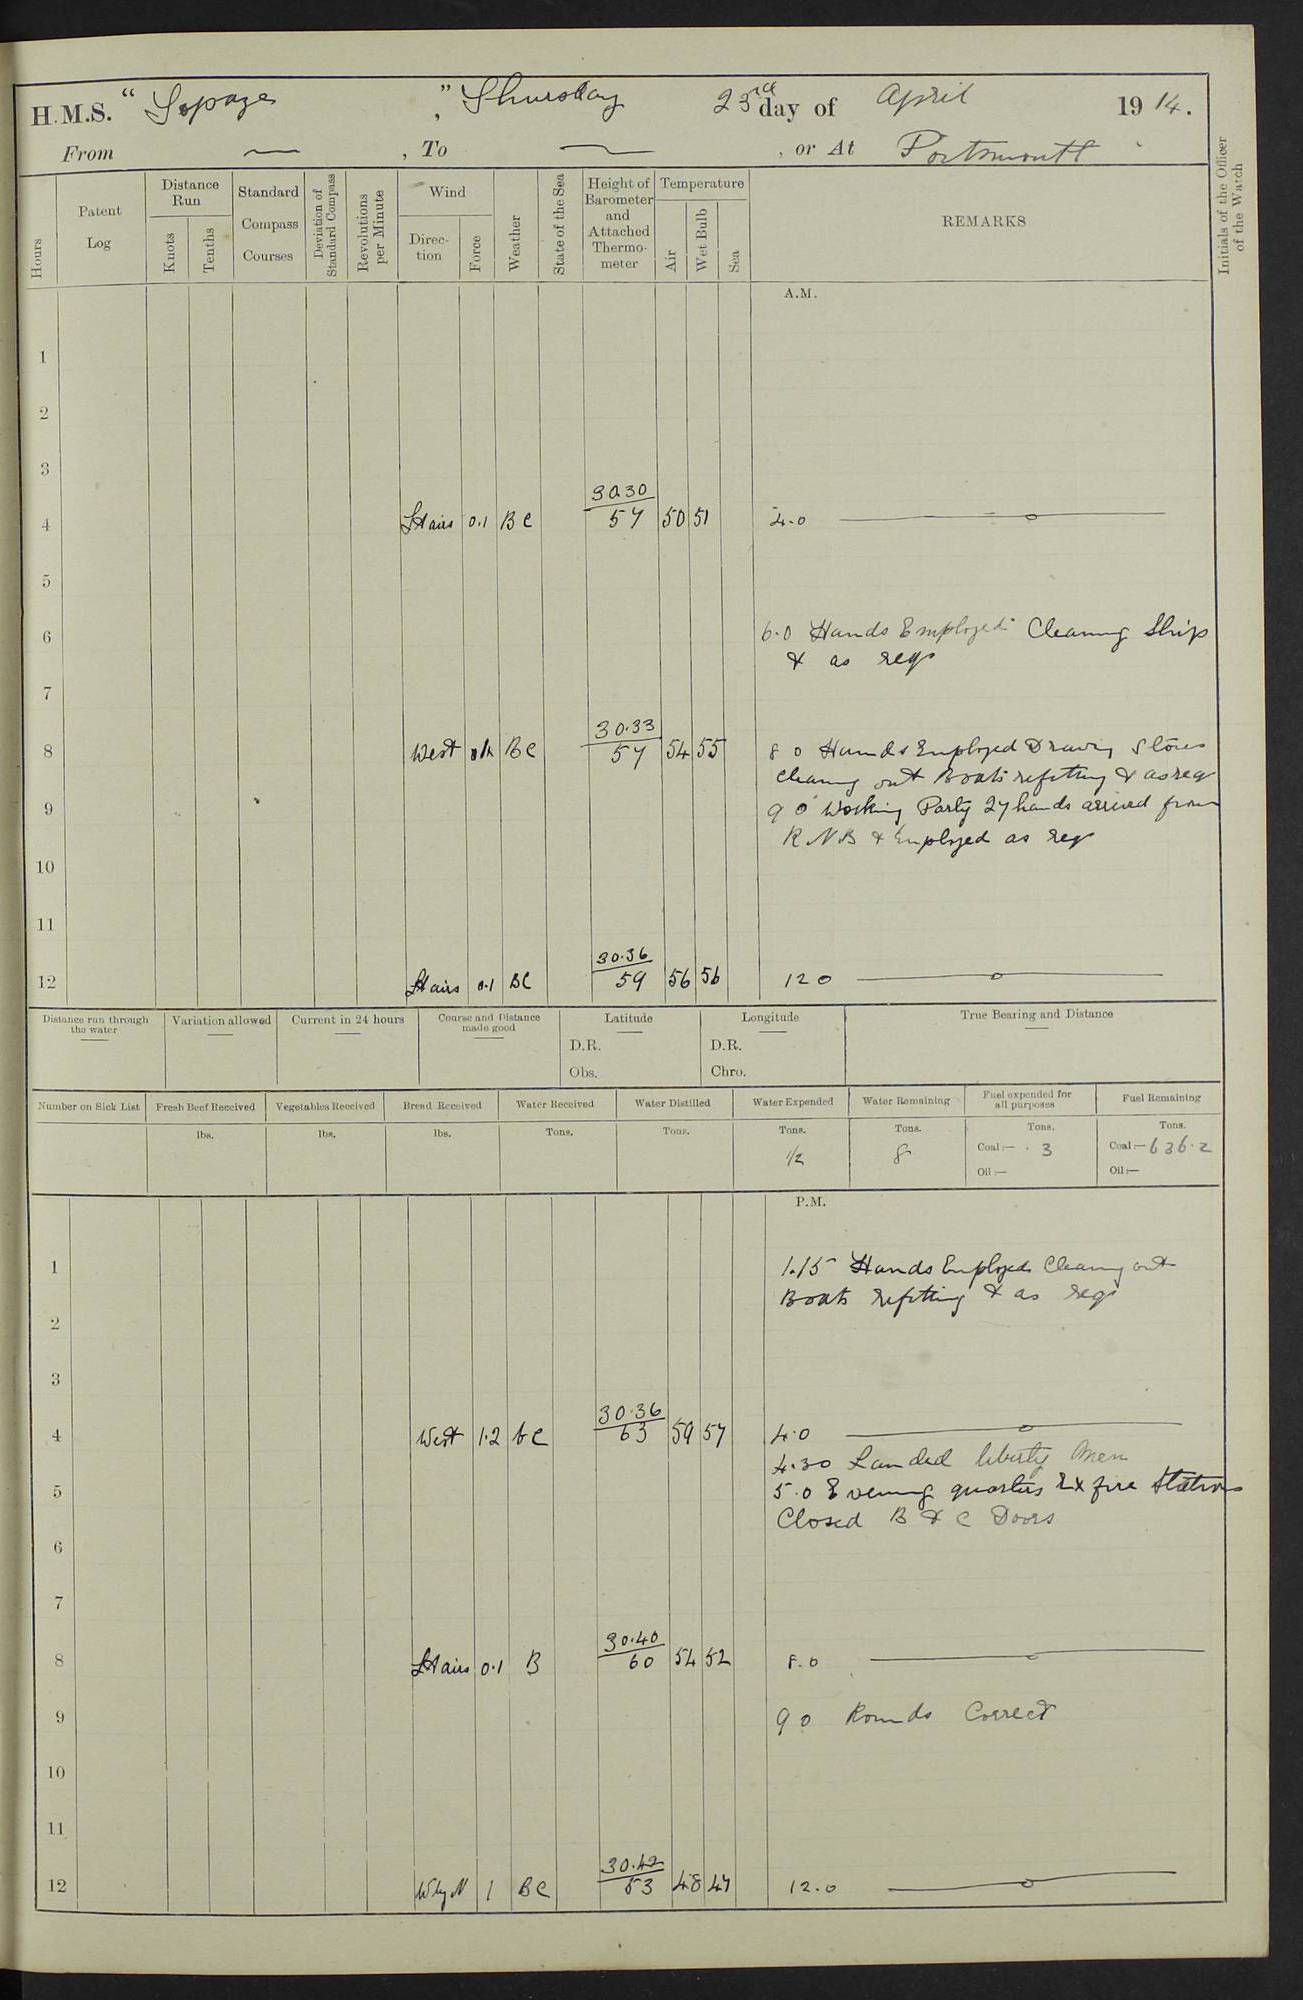 H.M.S. " Topaze " , Thursday 23rd day of April 1914.
From — , To — , or At Portsmouth
Hours
Patent Log
Distance Run
Knots
Tenths
Standard Compass Courses
Deviation of Standard Compass
Revolutions per Minute
Wind
Direc-tion
Force
Weather
State of the Sea
Height of Barometer and Attached Thermo-meter
Temperature
Air
Wet Bulb
Sea
REMARKS
Initials of the Officer of the Watch
A.M.
1
2
3
30.30
4 Lt airs 0.1 BC 57 50 51 4.0
5
6 6.0 Hands Employed Cleaning Ship
& as req
7
30.33
8 West BC 57 54 55 8 0 Hands Employed Drawing Stores
Cleaning out Boats refitting & as req
9 9 0 Working Party 27 hands arrived from
R N B & Employed as req
10
11
30.36
12 Lt airs 0.1 BC 59 56 56 12 0
Distance run through the water
Variation allowed
Current in 24 hours
Course and Distance made good
Latitude
D.R.
Obs.
Longitude
D.R.
Chro.
True Bearing and Distance
Number on Sick List
Fresh Beef Received
lbs.
Vegetables Received
lbs.
Bread Received
lbs.
Water Received
Tons.
Water Distilled
Tons.
Water Expended
Tons.
1/2
Water Remaining
Tons.
8
Fuel expended for all purposes
Tons.
Coal:— . 3
Oil:—
Fuel Remaining
Tons.
Coal:— 636.2
Oil:—
P.M.
1 1.15 Hands Employed Cleaning out
Boats refitting & as req
2
3
30.36
4 West 1.2 bc 63 59 57 4.0
4.30 Landed liberty men
5 5.0 Evening quarters Ex fire Stations
Closed B & C Doors
6
7
30.40
8 Lt airs 0.1 B 60 54 52 8.0
9 9 0 Rounds Correct
10
11
30.42
12 WbyN 1 BC 53 48 47 12.0